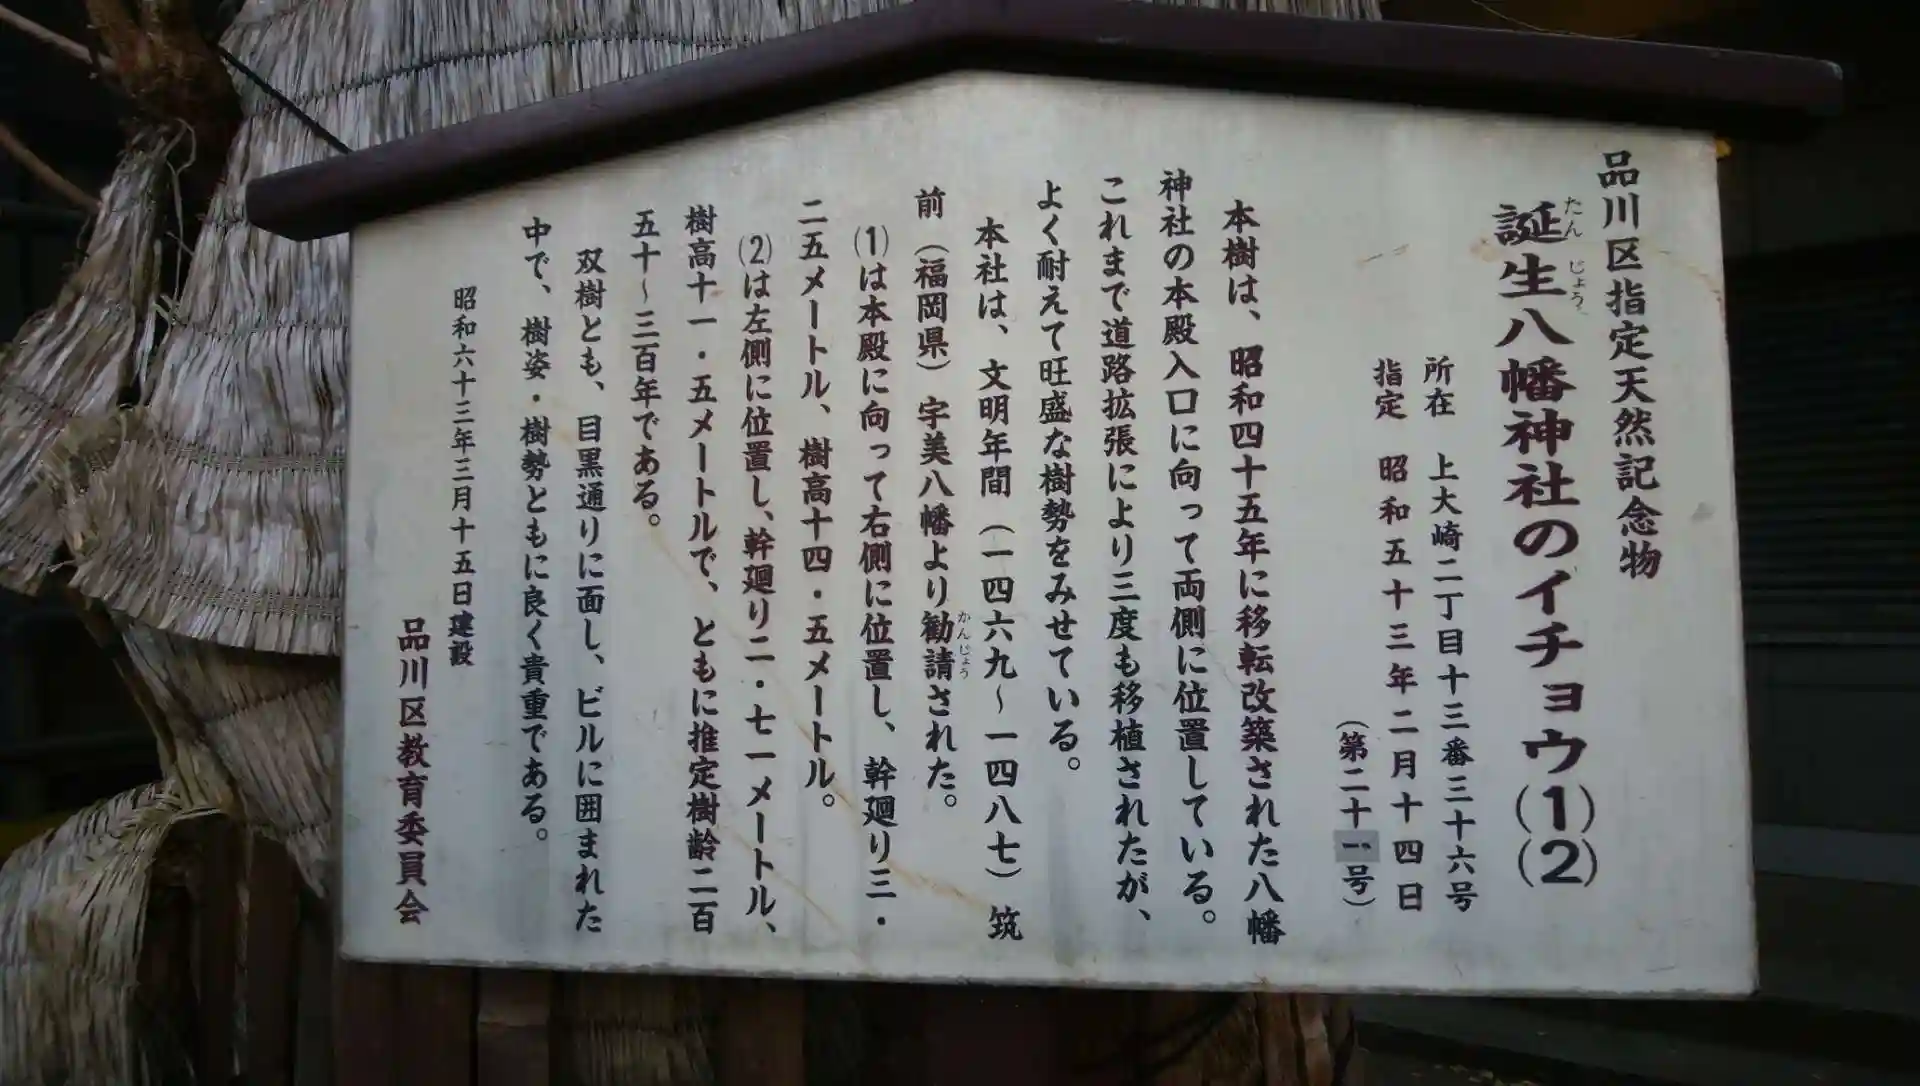 品川区指定天然記念物
誕生八幡神社のイチョウ(1)(2)
たん じょう
所在 上大崎二丁目十三番三十六号
指定 昭和五十三年二月十四日
(第二十一号)
本樹は、昭和四十五年に移転改築された八幡
神社の本殿入口に向って両側に位置している。
これまで道路拡張により三度も移植されたが、
よく耐えて旺盛な樹勢をみせている。
本社は、文明年間(一四六九～一四八七)筑
前(福岡県)宇美八幡より勧請された。
かんじょう
(1)は本殿に向って右側に位置し、幹廻り三・
二五メートル、樹高十四・五メートル。
(2)は左側に位置し、幹廻り二・七一メートル、
樹高十一・五メートルで、ともに推定樹齢二百
五十～三百年である。
双樹とも、目黒通りに面し、ビルに囲まれた
中で、樹姿・樹勢ともに良く貴重である。
昭和六十三年三月十五日建設
品川区教育委員会